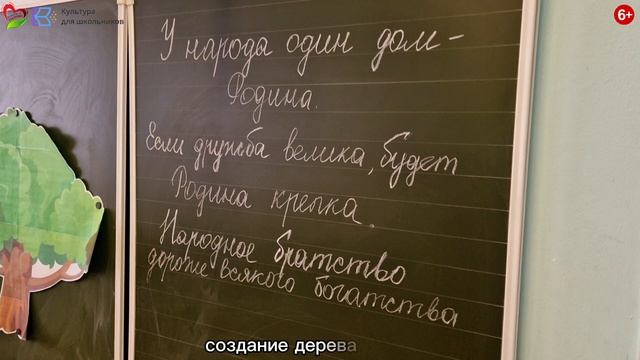 Культура
для школьников
6+
У народа один дом –
Родина.
Если дружба велика, будет
Родина крепка.
Народное братство
дороже всякого богатства
создание дерева